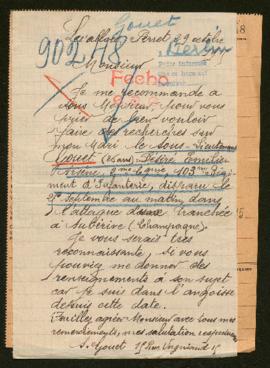 Gouet
Levallois Perret 29 octobre
902 A8
Berlin
Monsieur
Fecho
Je me recommande à
vous Monsieur pour vous
prier de bien vouloir
faire des recherches sur
mon Mari le Sous-Lieutenant
Gouet Désiré Emilien
103me Régi-
ment d'Infanterie, disparu le
Septembre au matin dans
l'attaque tranchée
à Aubérive (Champagne).
Je vous serait très
reconnaissante, si vous
pouviez me donner des
renseignements à son sujet
car je suis dans l'angoisse
depuis cette date.
Veuillez agréer Monsieur avec tous mes
remerciements, mes salutations respectueuses
Gouet